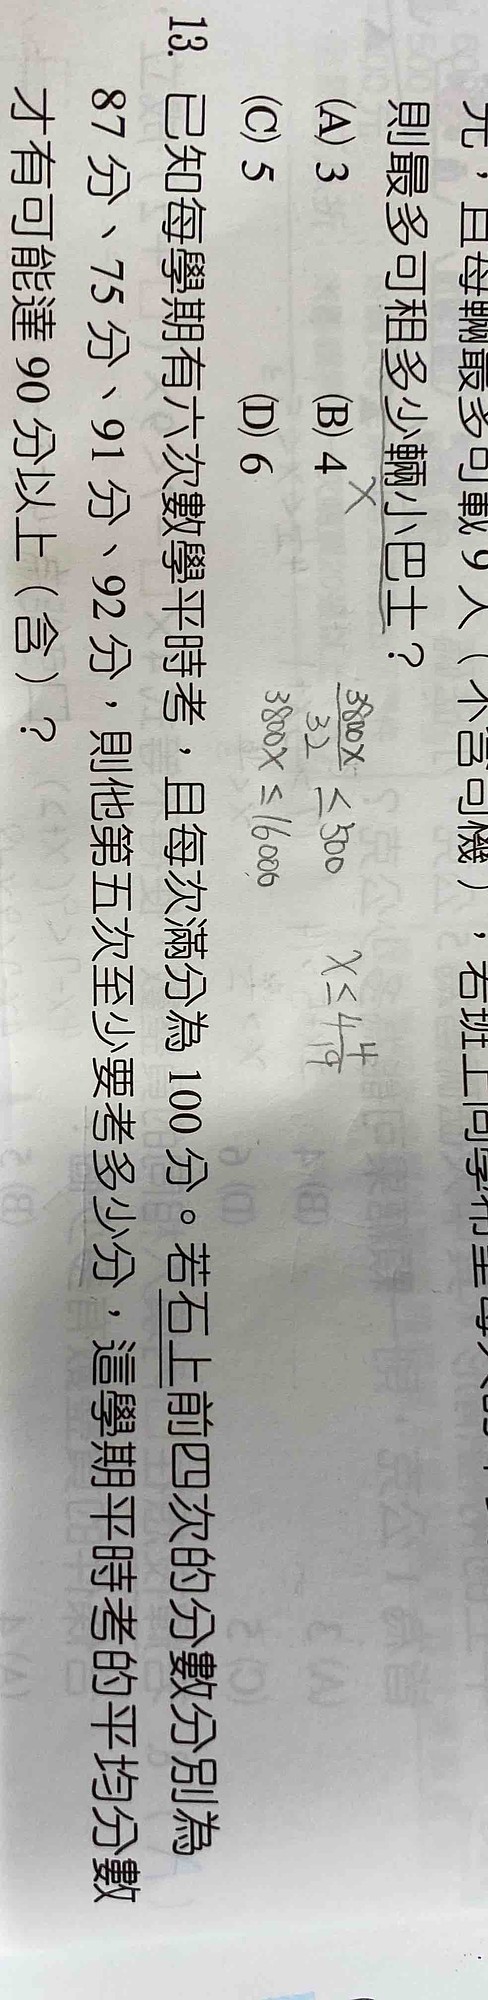 元，且每輛最多可載 9 人（不含司機），若班上同學希望每人
則最多可租多少輛小巴士？
(A) 3 (B) 4
(C) 5 (D) 6
X
3800x/32 ≤ 500 x ≤ 4 4/19
3800x ≤ 16000
13. 已知每學期有六次數學平時考，且每次滿分為 100 分。若石上前四次的分數分別為
87 分、75 分、91 分、92 分，則他第五次至少要考多少分，這學期平時考的平均分數
才有可能達 90 分以上（含）？